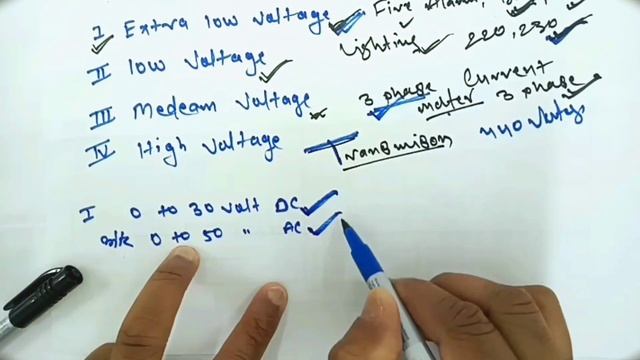 I Extra low voltage Fire Alarm,
II low voltage Lighting 220, 230
III Medeam voltage 3 phase Current
motor 3 phase
IV High voltage Transmision 440 Voltage
I 0 to 30 volt DC
0 to 50 " AC